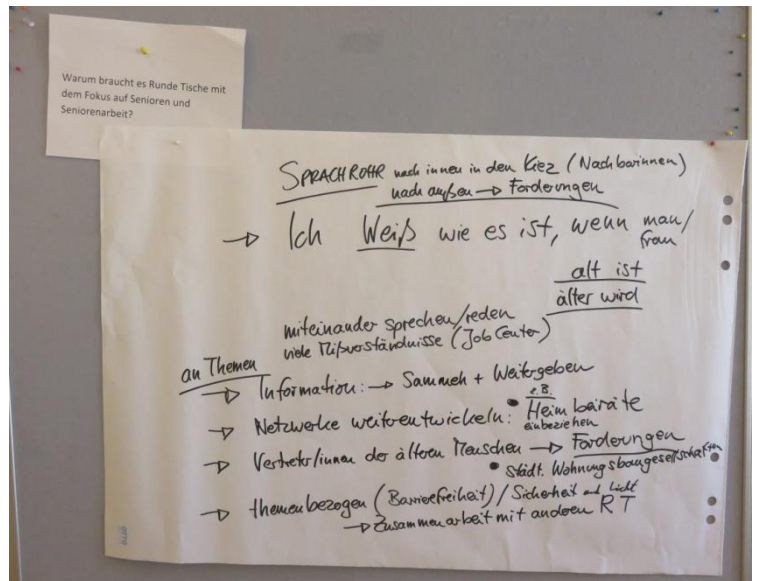 Warum braucht es Runde Tische mit
dem Fokus auf Senioren und
Seniorenarbeit?
SPRACHROHR nach innen in den Kiez (Nachbarinnen)
nach außen → Forderungen
→ Ich Weiß wie es ist, wenn man/
frau
alt ist
älter wird
miteinander sprechen/reden
viele Mißverständnisse (JobCenter)
an Themen
→ Information: → Sammeln + Weitergeben
→ Netzwerke weiterentwickeln: • z.B. Heimbeiräte
einbeziehen
→ Vertreter/innen der älteren Menschen → Forderungen
• städt. Wohnungsbaugesellschaften
→ themenbezogen (Barrierefreiheit) / Sicherheit und Licht
→ Zusammenarbeit mit anderen RT